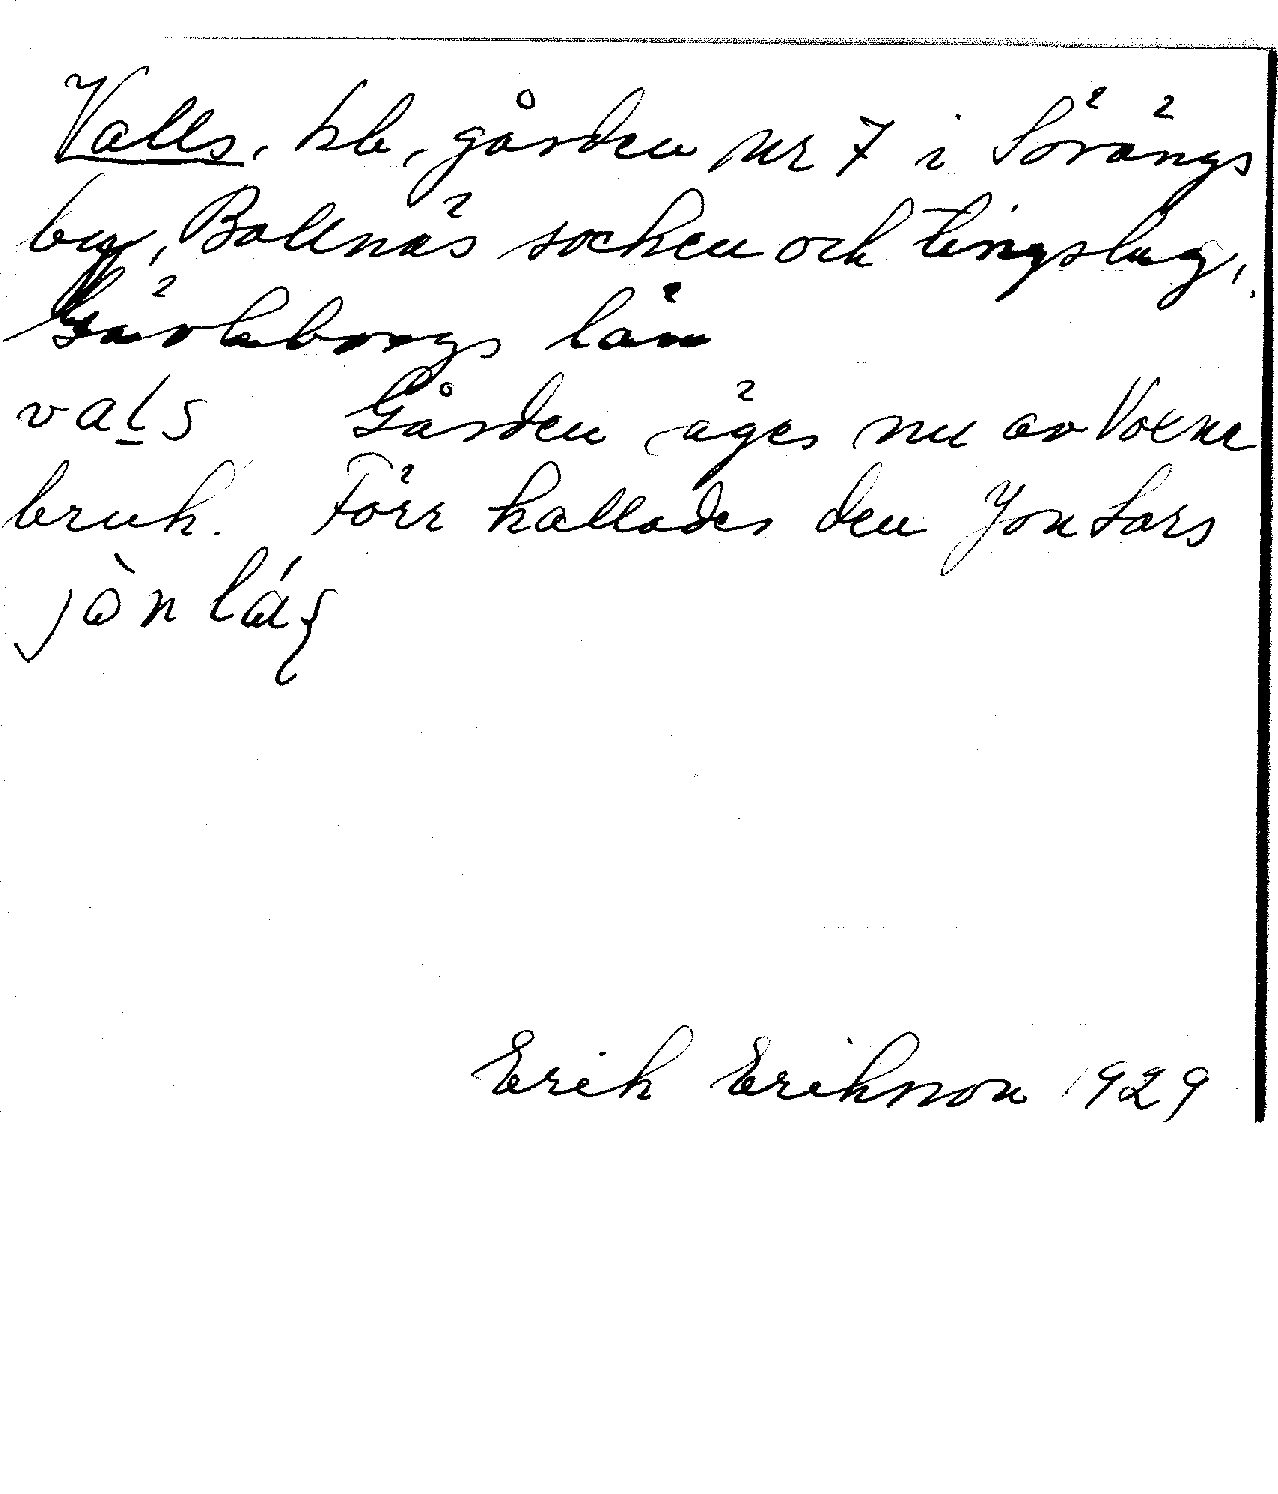 Valls, hb, gården nr 7 i Sörängs
by, Bollnäs socken och tingslag,
Gävleborgs län
vaḻs Gården äges nu av Voxne
bruk. Förr kallades den Jon Lars
jòn láʂ
Erik Eriksson 1929